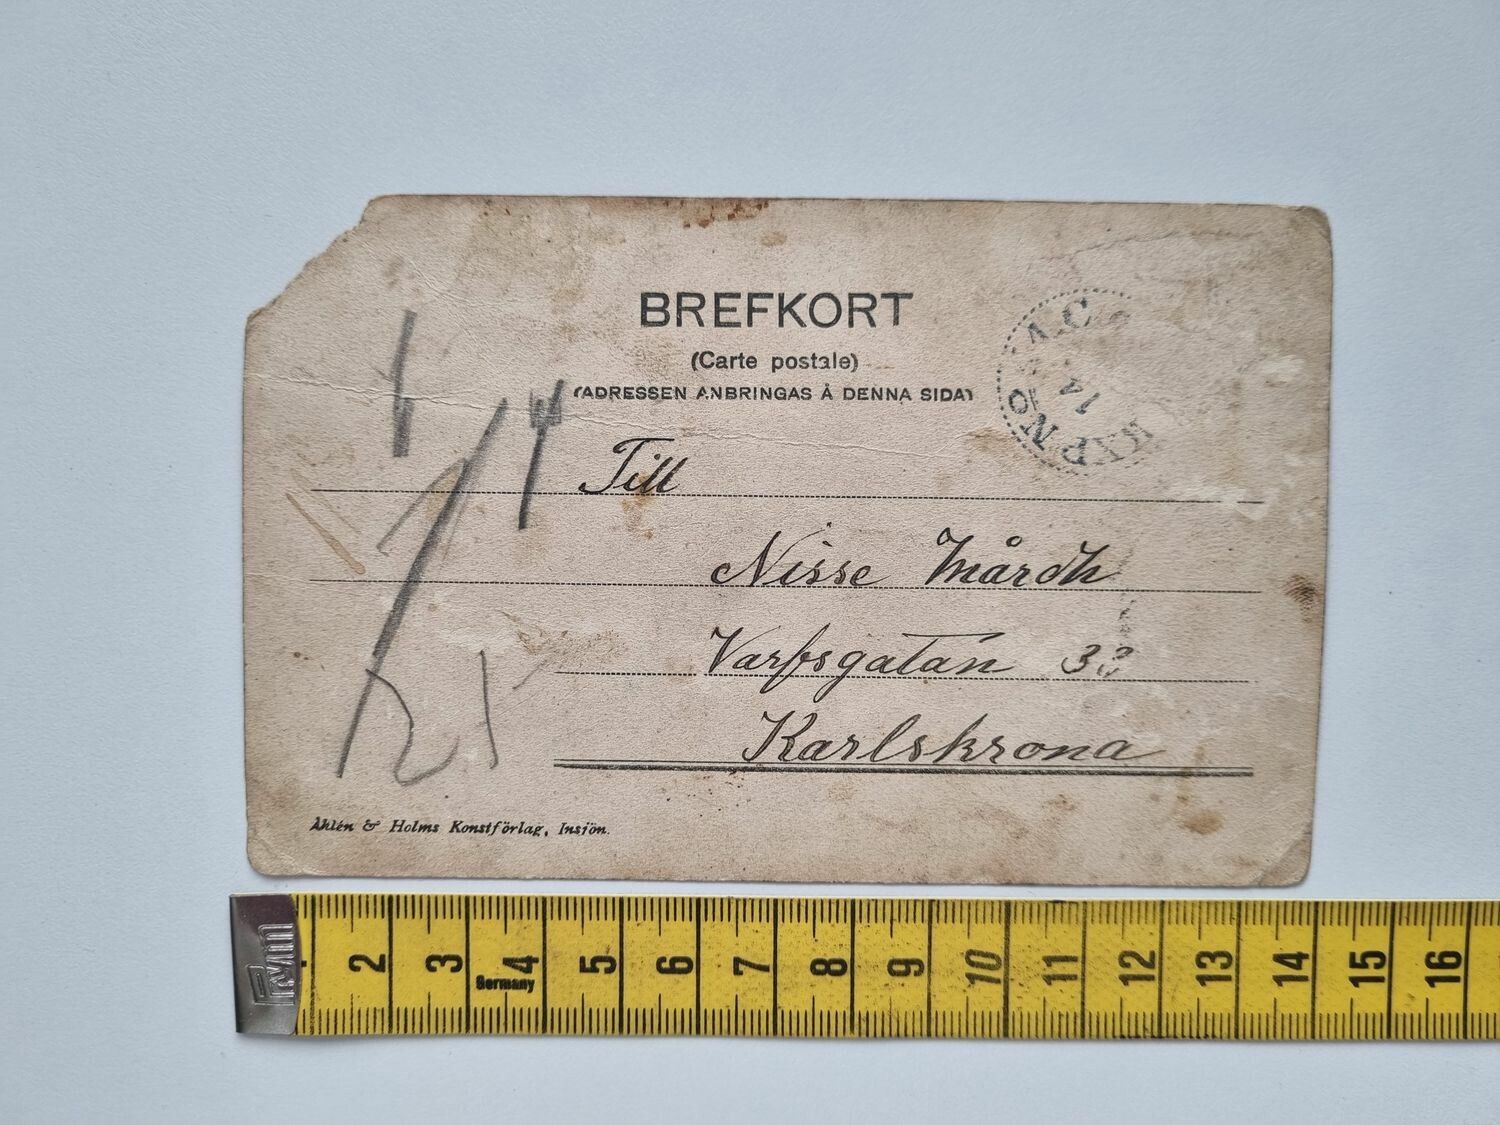 BREFKORT
(Carte postale)
(ADRESSEN ANBRINGAS Å DENNA SIDA)
Till
Nisse Mårdh
Varfsgatan 33
Karlskrona
Åhlén & Holms Konstförlag, Insjön.
PKXP No
A.C.
14
2 3 4 5 6 7 8 9 10 11 12 13 14 15 16
Germany